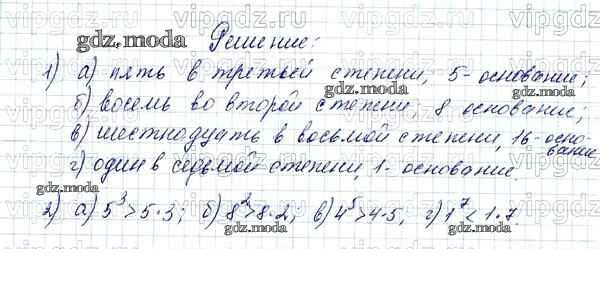 vipgdz.ru vipgdz.ru vipgdz.ru
gdz.moda Решение:
1) а) пять в третьей степени, 5- основание;
б) восемь во второй степени, 8 основание;
в) шестнадцать в восьмой степени, 16- осно-
вание
г) один в седьмой степени, 1- основание.
gdz.moda gdz.moda gdz.moda
2) а) 5³>5·3; б) 8²>8·2; в) 4⁵>4·5; г) 1⁷<1·7.
gdz.moda gdz.moda